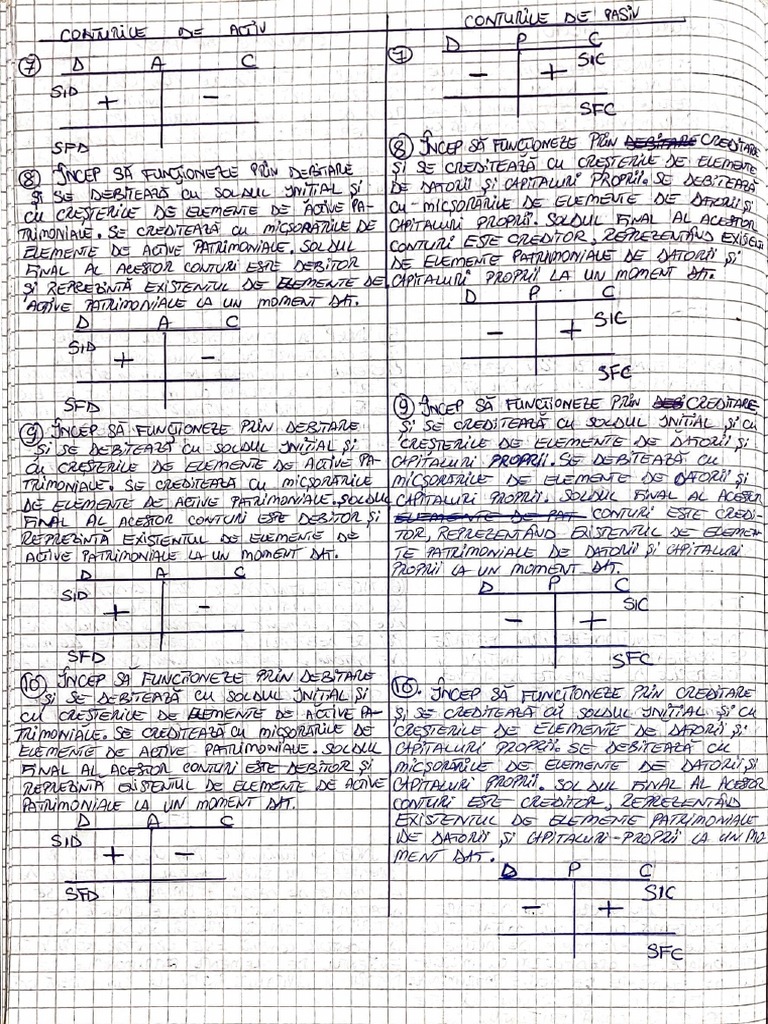 CONTURILE DE ACTIV
7
D A C
SID + -
SFD
8 ÎNCEP SĂ FUNCȚIONEZE PRIN DEBITARE
ȘI SE DEBITEAZĂ CU SOLDUL INIȚIAL ȘI
CU CREȘTERILE DE ELEMENTE DE ACTIVE PA-
TRIMONIALE. SE CREDITEAZĂ CU MICȘORĂRILE DE
ELEMENTE DE ACTIVE PATRIMONIALE. SOLDUL
FINAL AL ACESTOR CONTURI ESTE DEBITOR
ȘI REPREZINTĂ EXISTENTUL DE ELEMENTE DE
ACTIVE PATRIMONIALE LA UN MOMENT DAT.
D A C
SID + -
SFD
9 ÎNCEP SĂ FUNCȚIONEZE PRIN DEBITARE
ȘI SE DEBITEAZĂ CU SOLDUL INIȚIAL ȘI
CU CREȘTERILE DE ELEMENTE DE ACTIVE PA-
TRIMONIALE. SE CREDITEAZĂ CU MICȘORĂRILE
DE ELEMENTE DE ACTIVE PATRIMONIALE. SOLDUL
FINAL AL ACESTOR CONTURI ESTE DEBITOR ȘI
REPREZINTĂ EXISTENTUL DE ELEMENTE DE
ACTIVE PATRIMONIALE LA UN MOMENT DAT.
D A C
SID + -
SFD
10 ÎNCEP SĂ FUNCȚIONEZE PRIN DEBITARE
ȘI SE DEBITEAZĂ CU SOLDUL INIȚIAL ȘI
CU CREȘTERILE DE ELEMENTE DE ACTIVE PA-
TRIMONIALE. SE CREDITEAZĂ CU MICȘORĂRILE DE
ELEMENTE DE ACTIVE PATRIMONIALE. SOLDUL
FINAL AL ACESTOR CONTURI ESTE DEBITOR ȘI
REPREZINTĂ EXISTENTUL DE ELEMENTE DE ACTIVE
PATRIMONIALE LA UN MOMENT DAT.
D A C
SID + -
SFD
CONTURILE DE PASIV
7
D P C
- + SIC
SFC
8 ÎNCEP SĂ FUNCȚIONEZE PRIN DEBITARE CREDITARE
ȘI SE CREDITEAZĂ CU CREȘTERILE DE ELEMENTE
DE DATORII ȘI CAPITALURI PROPRII. SE DEBITEAZĂ
CU-MICȘORĂRILE DE ELEMENTE DE DATORII ȘI
CAPITALURI PROPRII. SOLDUL FINAL AL ACESTOR
CONTURI ESTE CREDITOR, REPREZENTÂND
DE ELEMENTE PATRIMONIALE DE DATORII ȘI
CAPITALURI PROPRII LA UN MOMENT DAT.
D P C
- + SIC
SFC
9 ÎNCEP SĂ FUNCȚIONEZE PRIN DEB CREDITARE
ȘI SE CREDITEAZĂ CU SOLDUL INIȚIAL ȘI CU
CREȘTERILE DE ELEMENTE DE DATORII ȘI
CAPITALURI PROPRII. SE DEBITEAZĂ CU
MICȘORĂRILE DE ELEMENTE DE DATORII ȘI
CAPITALURI PROPRII. SOLDUL FINAL AL ACESTOR
ELEMENTE DE PAT CONTURI ESTE CREDI-
TOR, REPREZENTÂND EXISTENTUL DE ELEMEN-
TE PATRIMONIALE DE DATORII ȘI CAPITALURI
PROPRII LA UN MOMENT DAT.
D P C
- + SIC
SFC
10. ÎNCEP SĂ FUNCȚIONEZE PRIN CREDITARE
ȘI SE CREDITEAZĂ CU SOLDUL INIȚIAL ȘI CU
CREȘTERILE DE ELEMENTE DE DATORII ȘI
CAPITALURI PROPRII. SE DEBITEAZĂ CU
MICȘORĂRILE DE ELEMENTE DE DATORII ȘI
CAPITALURI PROPRII. SOLDUL FINAL AL ACESTOR
CONTURI ESTE CREDITOR, REPREZENTÂND
EXISTENTUL DE ELEMENTE PATRIMONIALE
DE DATORII ȘI CAPITALURI-PROPRII LA UN MO
MENT DAT.
D P C
- + SIC
SFC